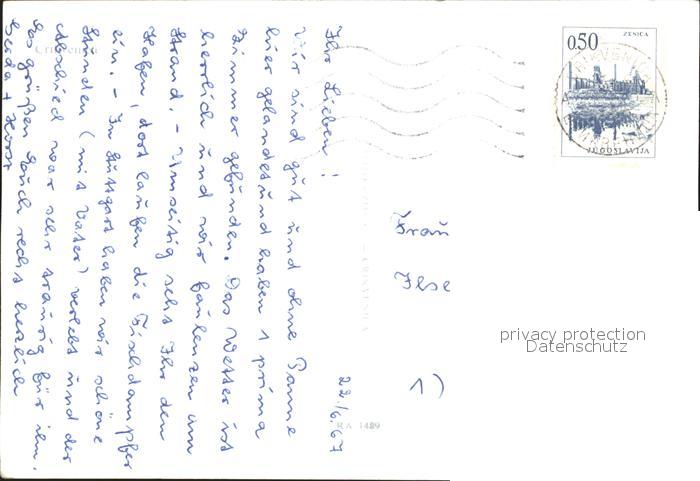 22./6.67
Ihr Lieben!
Wir sind gut und ohne Panne
hier gelandet und haben 1 prima
Zimmer gefunden. Das Wetter ist
herrlich und wir faulenzen am
Strand. - Umseitig seht Ihr den
Hafen, dort laufen die Fischdampfer
ein. - In Stuttgart haben wir schöne
Stunden (mit Vater) verlebt und der
Abschied war sehr traurig für ihn.
Es grüßen Euch recht herzlich
+ Horst
Frau
Ilse
1)
ZENICA
0.50
JUGOSLAVIJA
RA 1489
privacy protection
Datenschutz